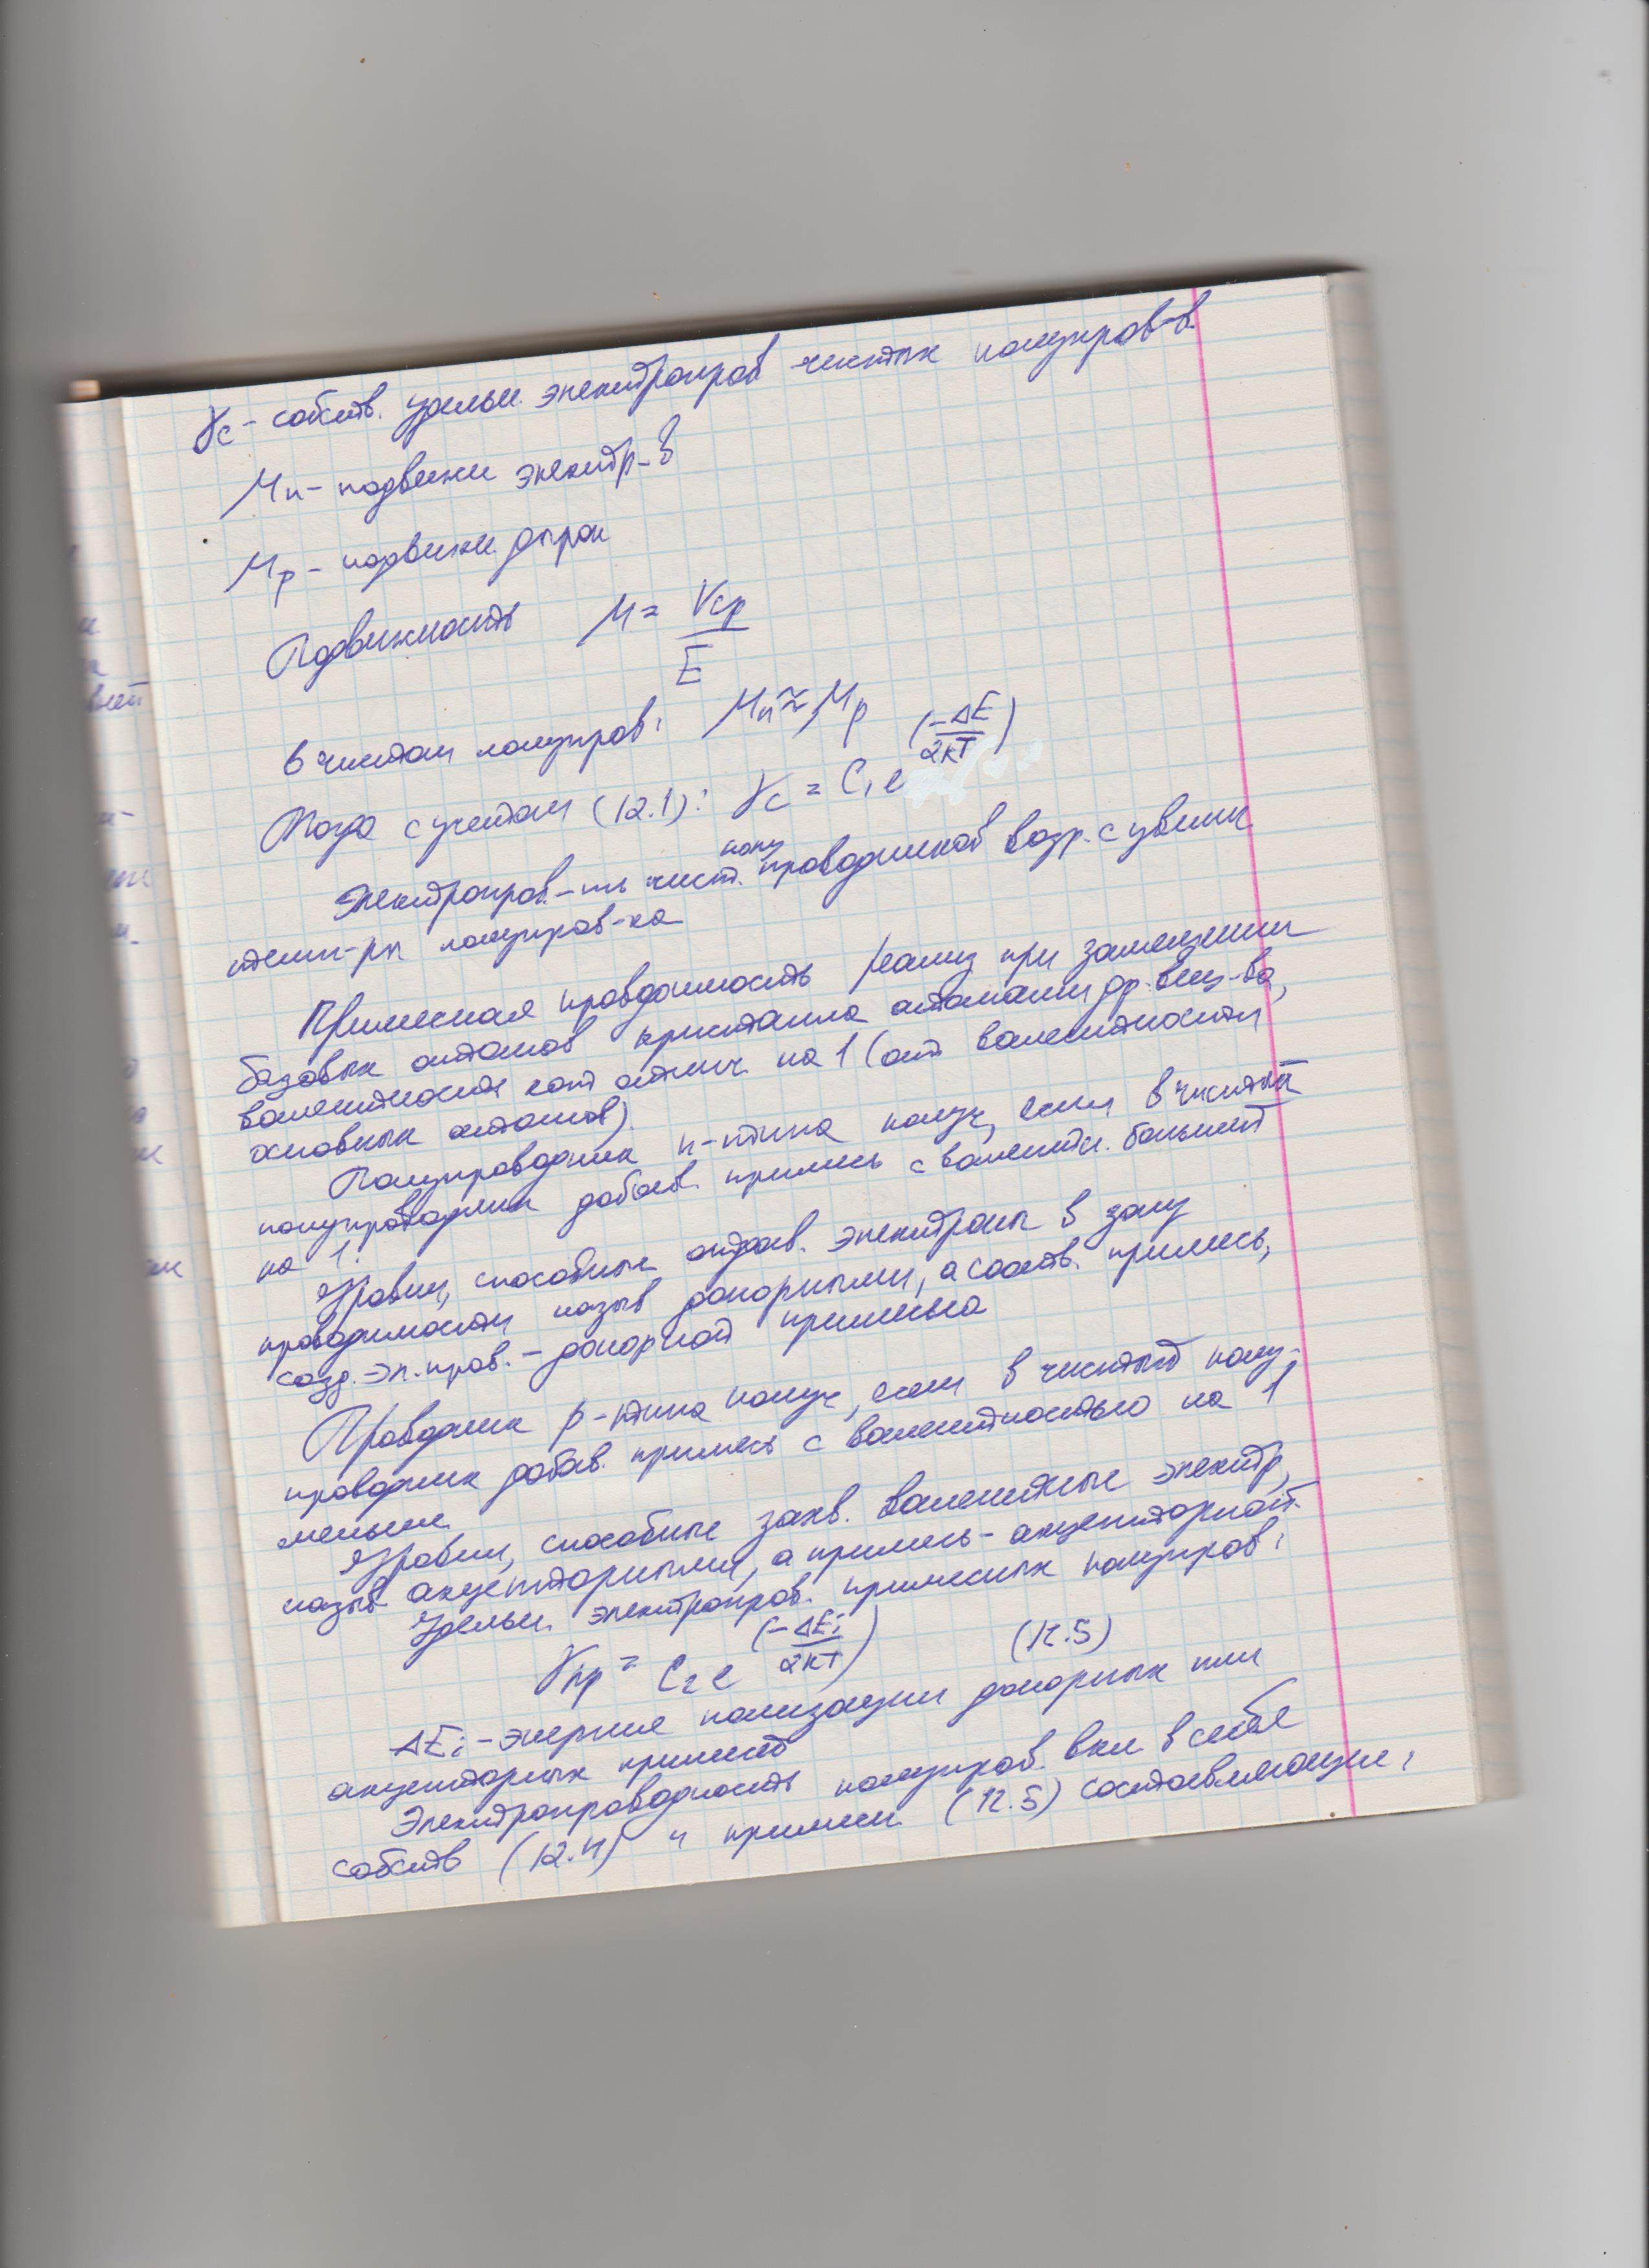 γс - собств. удельн. электропров чистых полупров-в
Mn - подвижн электр-в
Mp - подвижн. дырок
Подвижность M = Vср / E
В чистом полупров: Mn ≈ Mp
Тогда с учетом (12.1): γс = C₁ e (-ΔE / 2kT)
Электропров-ть чист. полупроводников возр. с увелич
темп-ры полупров-ка
Примесная проводимость реализ при замещении
базовых атомов кристалла атомами др. вещ-ва,
валентность кот отлич на 1 (от валентности
основных атомов).
Полупроводник n-типа получ, если в чистый
полупроводник добав. примесь с валентн. большей
на 1.
Уровни, способные отдав. электроны в зону
проводимости назыв донорными, а соотв. примесь,
созд. эл. пров. - донорной примесью
Проводник p-типа получ, если в чистый полу-
проводник добав. примесь с валентностью на 1
меньше
Уровни, способные захв. валентные электр,
назыв акцепторными, а примесь - акцепторной.
Удельн. электропров. примесных полупров:
γпр = C₂ e (-ΔEi / 2kT) (12.5)
ΔEi - энергия ионизации донорных или
акцепторных примесей
Электропроводность полупров. вкл в себя
собств (12.4) и примесн (12.5) составляющие: